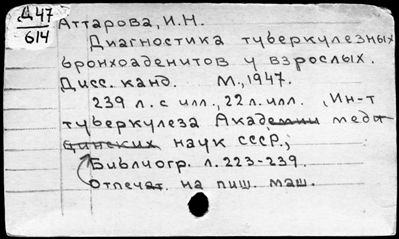 Д47
614
Аттарова, И.Н.
Диагностика туберкулезных
бронхоаденитов у взрослых.
Дисс. канд. М., 1947.
239 л. с илл., 22 л. илл. (Ин-т
туберкулеза Академии меди
цинских наук СССР.;
Библиогр. л. 223-239.
Отпечат. на пиш. маш.